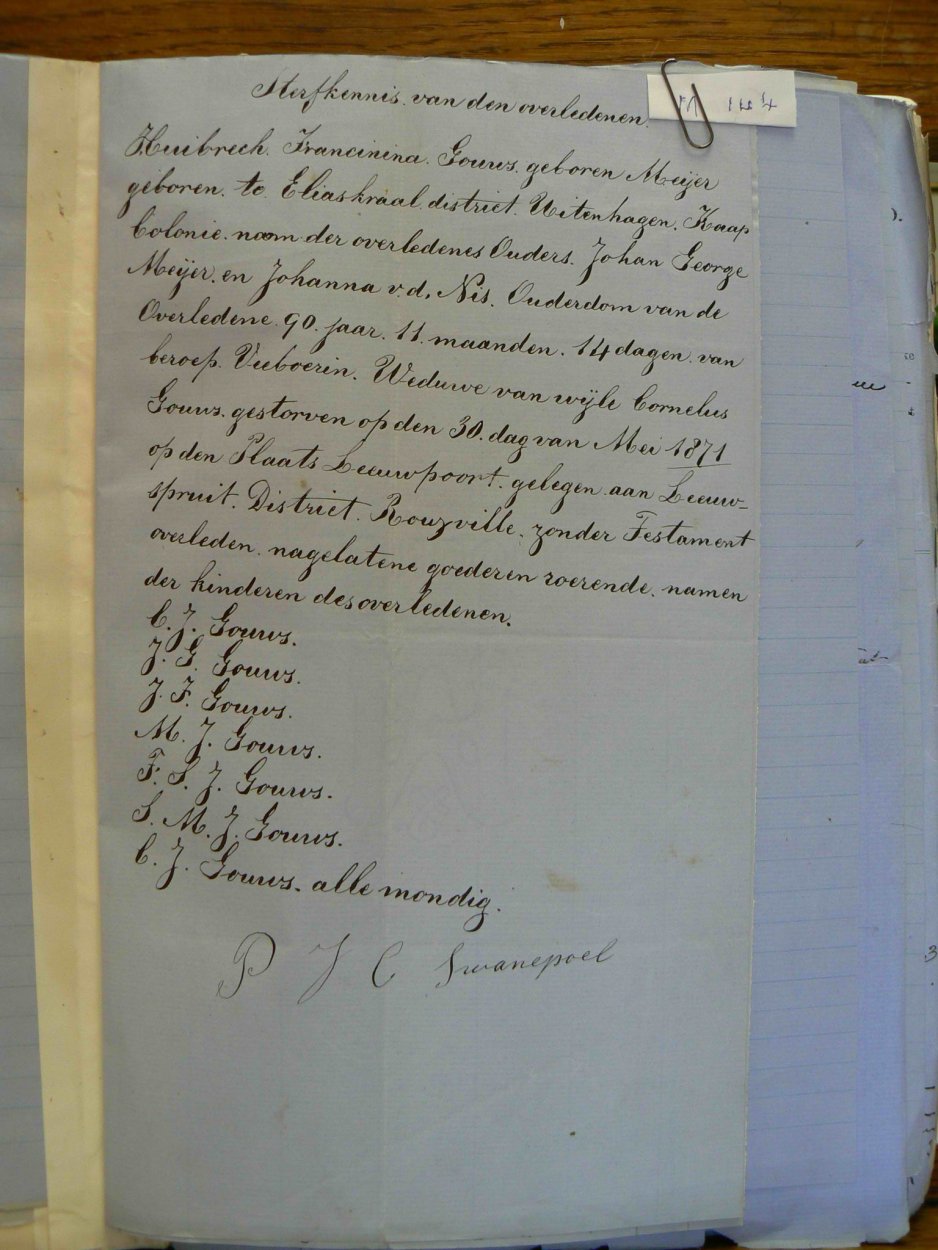 Sterfkennis van den overledenen.
Huibrech. Francinina. Gouws. geboren Meijer
geboren. te Eliaskraal. district. Uitenhagen. Kaap
Colonie. naam der overledenes Ouders. Johan George
Meijer. en Johanna v.d. Nis. Ouderdom van de
Overledene. 90. jaar. 11. maanden. 14 dagen. van
beroep. Veeboerin. Weduwe van wijle Cornelus
Gouws. gestorven op den 30. dag van Mei 1871
op den Plaats Leeuwpoort. gelegen aan Leeuw-
spruit. District. Rouzville. zonder Testament
overleden. nagelatene goederen roerende. namen
der kinderen des overledenen.
C. J. Gouws.
J. G. Gouws.
J. F. Gouws.
M. J. Gouws.
F. S. J. Gouws.
S. M. J. Gouws.
C. J. Gouws. alle mondig.
P J C Swanepoel